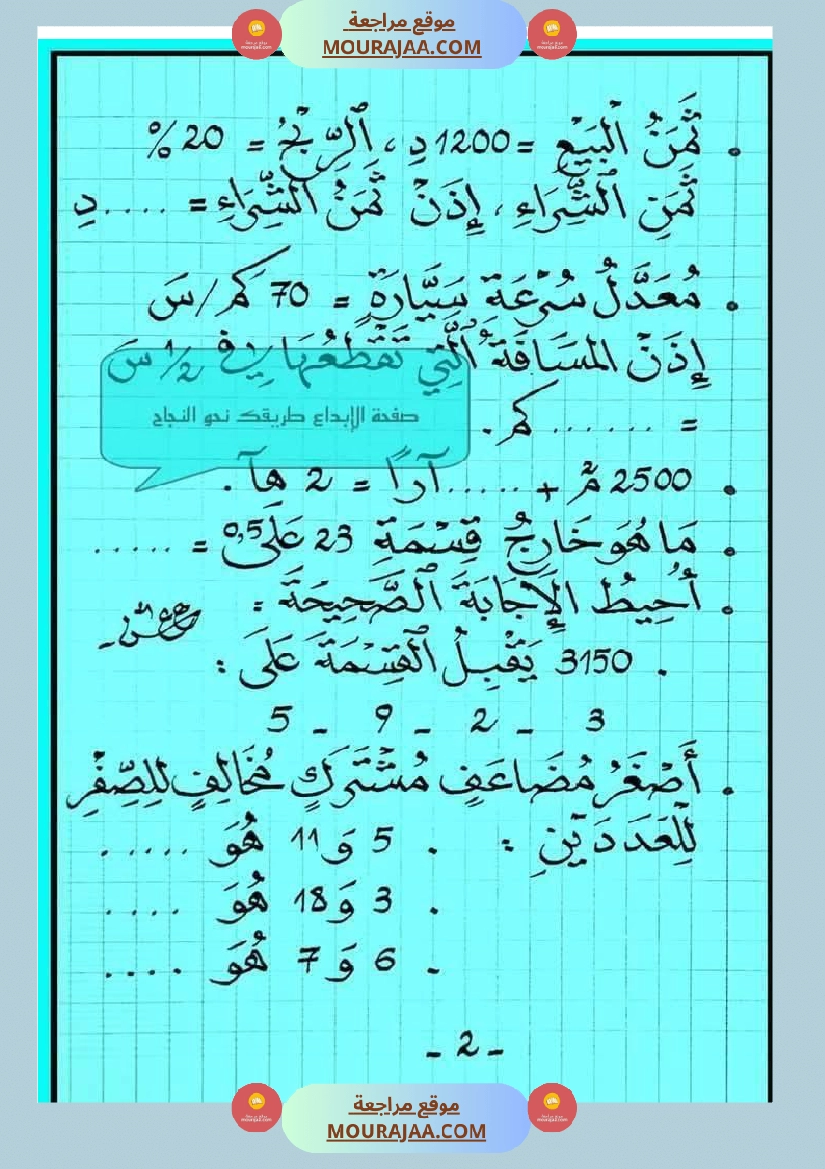 موقع مراجعة
MOURAJAA.COM
. ثَمَنُ الْبَيْعِ = 1200 دِ، الرِّبْحُ = 20 %
ثَمَنِ الشِّرَاءِ، إِذَنْ ثَمَنُ الشِّرَاءِ = ..... دِ
. مُعَدَّلُ سُرْعَةِ سَيَّارَةٍ = 70 كم/سَ
إِذَنْ المَسَافَةُ الَّتِي تَقْطَعُهَا فِي 1/2 سَ
= ...... كم.
. 2500 م² + ...... آرًا = 2 هآ.
. مَا هُوَ خَارِجُ قِسْمَةِ 23 عَلَى 0,5 = .....
. أُحِيطُ الإِجَابَةَ الصَّحِيحَةَ :
. 3150 يَقْبِلُ الْقِسْمَةَ عَلَى :
3 - 2 - 9 - 5
. أَصْغَرُ مُضَاعَفٍ مُشْتَرَكٍ مُخَالِفٍ لِلصِّفْرِ
لِلْعَدَدَيْنِ :
. 5 وَ 11 هُوَ .....
. 3 وَ 18 هُوَ ....
. 6 وَ 7 هُوَ ....
- 2 -
صفحة الإبداع طريقك نحو النجاح
موقع مراجعة
MOURAJAA.COM